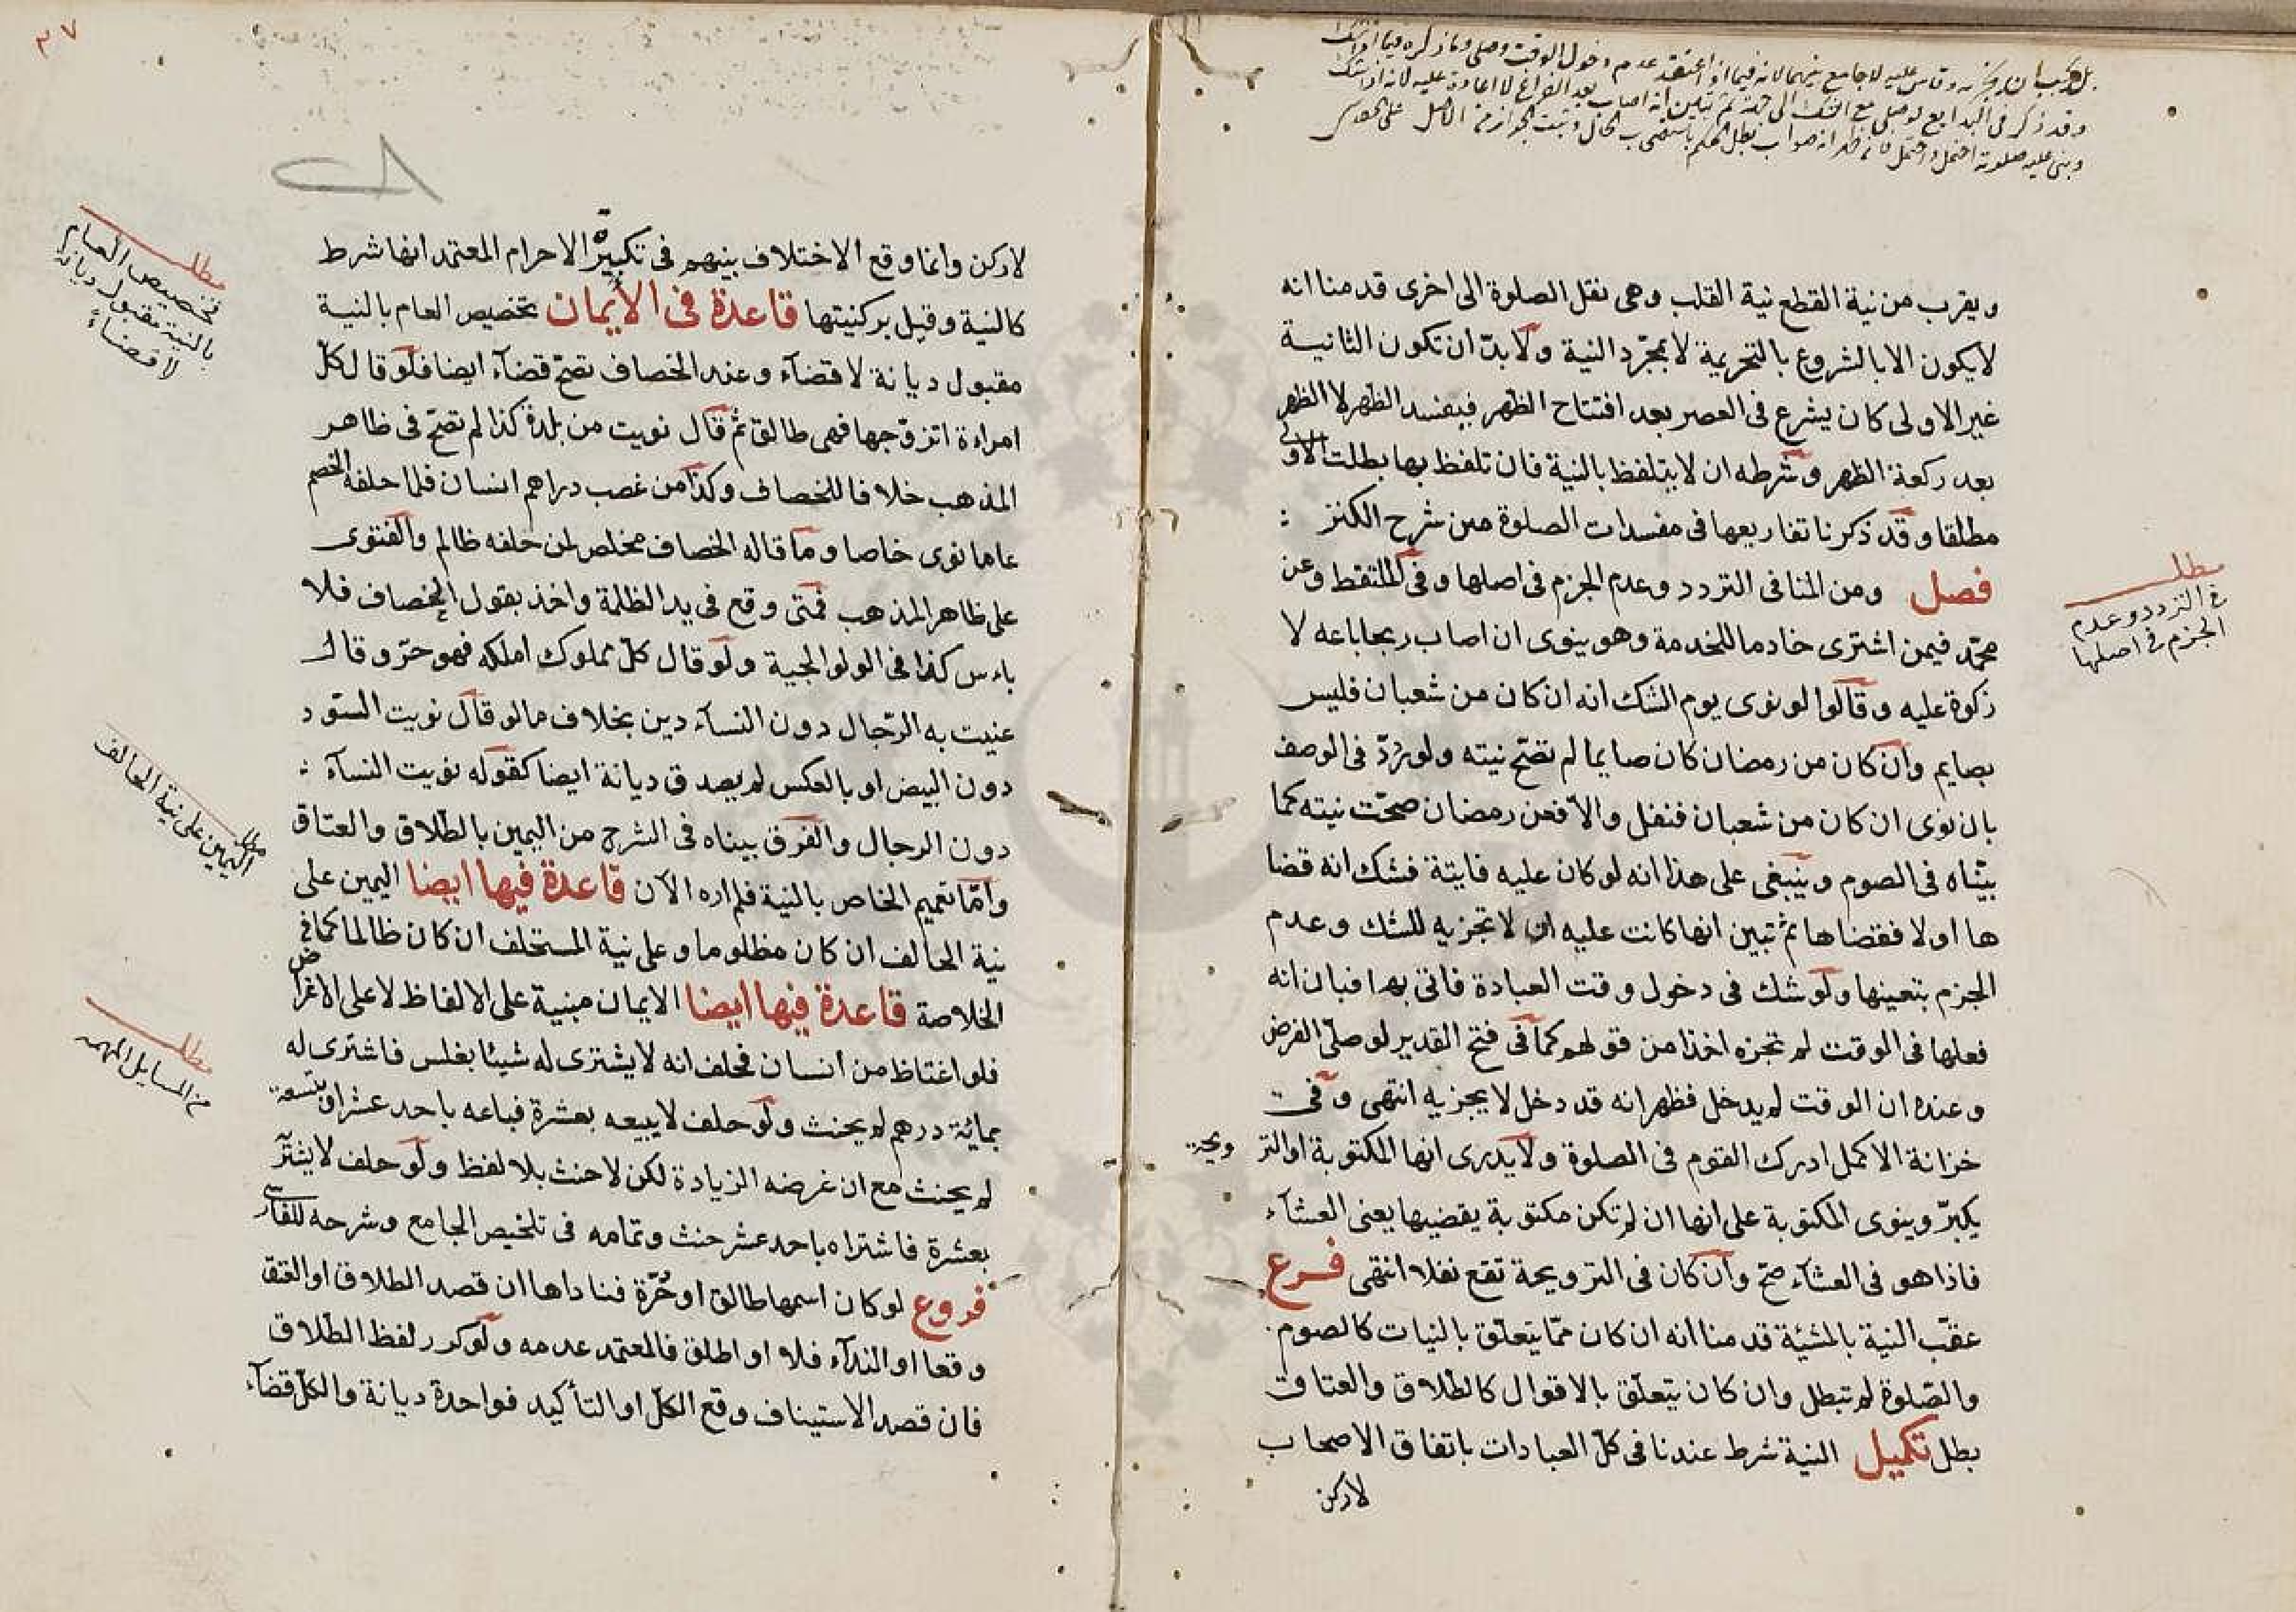 ويقرب من نية القطع نية القلب وهى نقل الصلوة الى اخرى قد منا انه
لايكون الا بالشروع بالتحريمة لا بمجرّد النية ولا بدّ ان تكون الثانية
غير الاولى كان يشرع فى العصر بعد افتتاح الظهر فيفسد الظهر لا الظهر
بعد ركعة الظهر وشرطه ان لا يتلفظ بالنية فان تلفظ بها بطلت الاولى
مطلقا وقد ذكرنا تفاريعها فى مفسدات الصلوة من شرح الكنز :
فصل ومن المنافى التردد وعدم الجزم فى اصلها وفى الملتقط وعن
محمّد فيمن اشترى خادما للخدمة وهو ينوى ان اصاب ربحا باعه لا
زكوة عليه وقالوا لو نوى يوم الشك انه ان كان من شعبان فليس
بصايم وان كان من رمضان كان صايما لم تصحّ نيته ولو ردّد فى الوصف
بان نوى ان كان من شعبان فنفل والاّ فعن رمضان صحّت نيته كما
بيّناه فى الصوم وينبغى على هذا انه لو كان عليه فايتة فشك انه قضا
ها او لا فقضاها ثم تبين انها كانت عليه ان لا تجزيه للشك وعدم
الجزم بتعينها ولو شك فى دخول وقت العبادة فاتى بها فبان انه
فعلها فى الوقت لم تجزه اخذا من قولهم كما فى فتح القدير لو صلّى الفرض
وعنده ان الوقت لم يدخل فظهر انه قد دخل لا يجزيه انتهى وفى
خزانة الاكمل ادرك القوم فى الصلوة ولا يدرى انها المكتوبة او التر ويحة
يكبّر وينوى المكتوبة على انها ان لم تكن مكتوبة يقضيها يعنى العشآء
فاذا هو فى العشآء صحّ وان كان فى الترويحة تقع نفلا انتهى فرع
عقّب النية بالمشيّة قد منا انه ان كان ممّا يتعلّق بالنيات كالصوم
والصّلوة لم تبطل وان كان يتعلّق بالاقوال كالطلاق والعتاق
بطل تكميل النية شرط عندنا فى كلّ العبادات باتفاق الاصحاب
لاركن
مطلب
فى التردد وعدم
الجزم فى اصلها
لاركن وانما وقع الاختلاف بينهم فى تكبيرة الاحرام المعتمد انها شرط
كالنية وقيل بركنيتها قاعدة فى الأيمان تخصيص العام بالنية
مقبول ديانة لا قضآء وعند الخصاف تصحّ قضآء ايضا فلو قال كلّ
امراءة اتزوّجها فهى طالق ثم قال نويت من بلدة كذا لم تصحّ فى ظاهر
المذهب خلافا للخصاف وكذا من غصب دراهم انسان فلما حلفه الخصم
عاما نوى خاصا وما قاله الخصاف مخلص لمن حلفه ظالم والفتوى
على ظاهر المذهب فمتى وقع فى يد الظلمة واخذ بقول الخصاف فلا
باءس كذا فى الولوالجية ولو قال كلّ مملوك املكه فهو حرّ وقال
عنيت به الرّجال دون النسآء دين بخلاف مالو قال نويت السّود
دون البيض او بالعكس لم يصدق ديانة ايضا كقوله نويت النسآء :
دون الرجال والفرق بيناه فى الشرح من اليمين بالطّلاق والعتاق
وامّا تعميم الخاص بالنية فلم اره الآن قاعدة فيها ايضا اليمين على
نية الحالف ان كان مظلوما وعلى نية المستحلف ان كان ظالما كما فى
الخلاصة قاعدة فيها ايضا الايمان مبنية على الالفاظ لا على الاغراض
فلو اغتاظ من انسان فحلف انه لا يشترى له شيئا بفلس فاشترى له
بمائة درهم لم يحنث ولو حلف لا يبيعه بعشرة فباعه باحد عشر او بتسعة
لم يحنث مع ان غرضه الزيادة لكن لا حنث بلا لفظ ولو حلف لا يشترى
بعشرة فاشتراه باحد عشر حنث وتمامه فى تلخيص الجامع وشرحه للفارسى
فروع لو كان اسمها طالق او حرّة فناداها ان قصد الطلاق او العتق
وقعا او الندآء فلا او اطلق فالمعتمد عدمه ولو كرر لفظ الطّلاق
فان قصد الاستيناف وقع الكلّ او التأكيد فواحدة ديانة والكلّ قضآء
مطلب
تخصيص العام
بالنية مقبول ديانة
لا قضاءً
مطلب
اليمين على نية الحالف
مطلب
من المسايل المهمه
٣٧